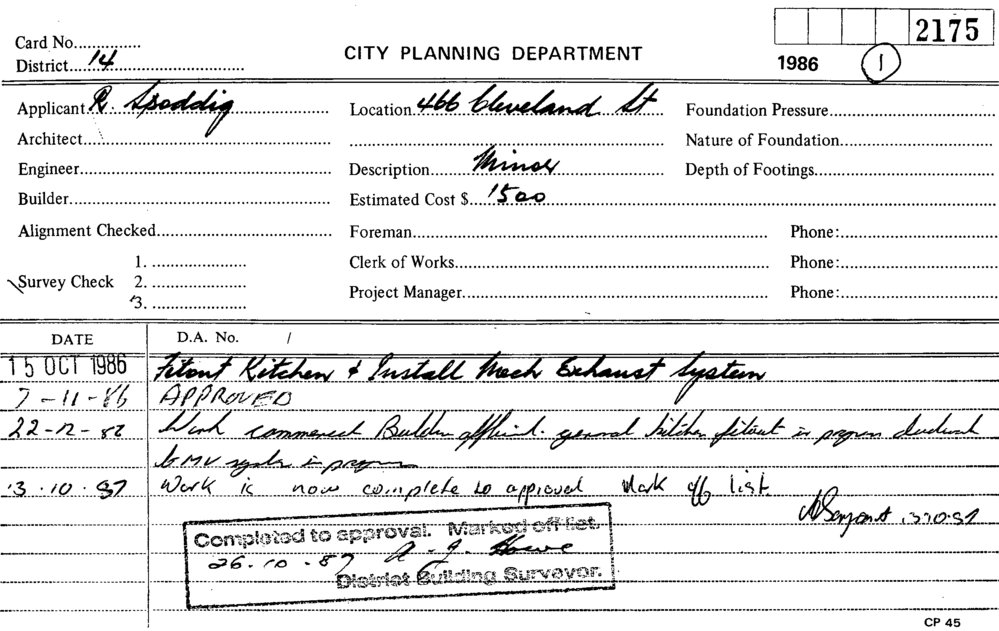 2175
Card No.
District 14
CITY PLANNING DEPARTMENT
1986 1
Applicant R. Spoddig
Location 466 Cleveland St
Foundation Pressure
Architect
Nature of Foundation
Engineer
Description Minor
Depth of Footings
Builder
Estimated Cost $ 1500
Alignment Checked
Foreman
Phone:
1.
Clerk of Works
Phone:
Survey Check 2.
Project Manager
Phone:
3.
DATE D.A. No. /
15 OCT 1986 Fitout Kitchen & Install Mech Exhaust System
7-11-86 APPROVED
22-12-86 Work commenced Builder general kitchen fitout in progress
system in progress
13.10.87 Work is now complete to approval Mark off list
13.10.87
Completed to approval. Marked off list.
26.10.87 A. J. Howe
District Building Surveyor.
CP 45